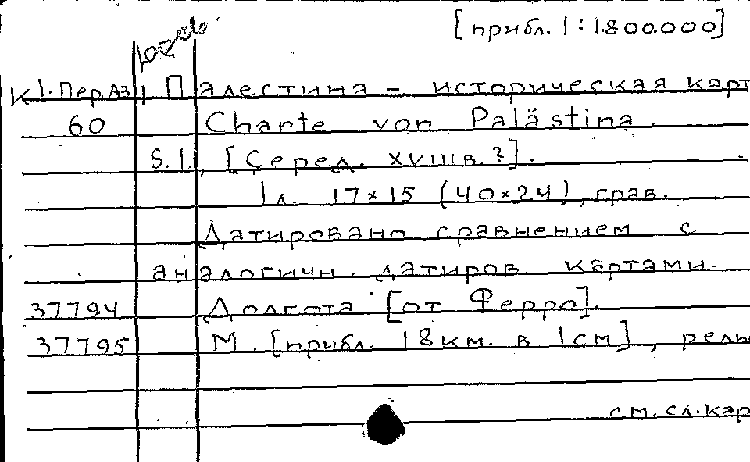 [прибл. 1:1.800.000]
К 1. Пер.Аз. Палестина – историческая карт
60 Charte von Palästina.
S.l., [Серед. XVIII в.?].
1 л. 17×15 (40×24), грав.
Датировано сравнением с
аналогичн. датиров. картами.
37794 Долгота [от Ферро].
37795 М. [прибл. 18 км. в 1 см], рель
см. сл. кар